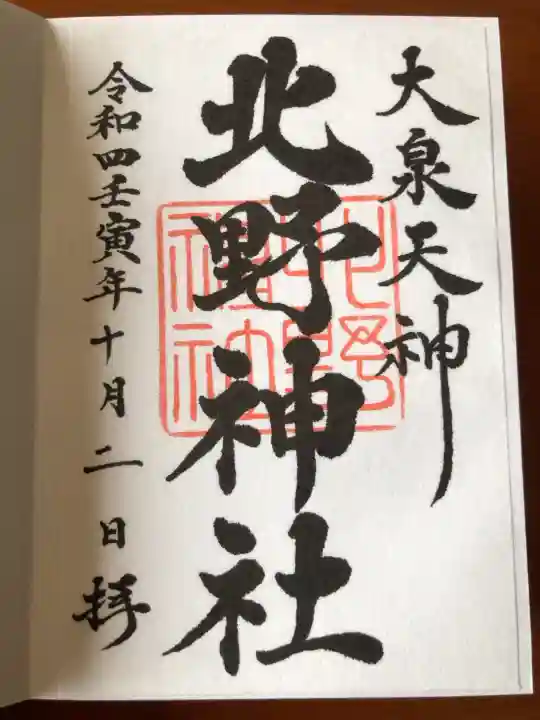 大泉天神
北野神社
令和四壬寅年十月二日拝
北野
神社